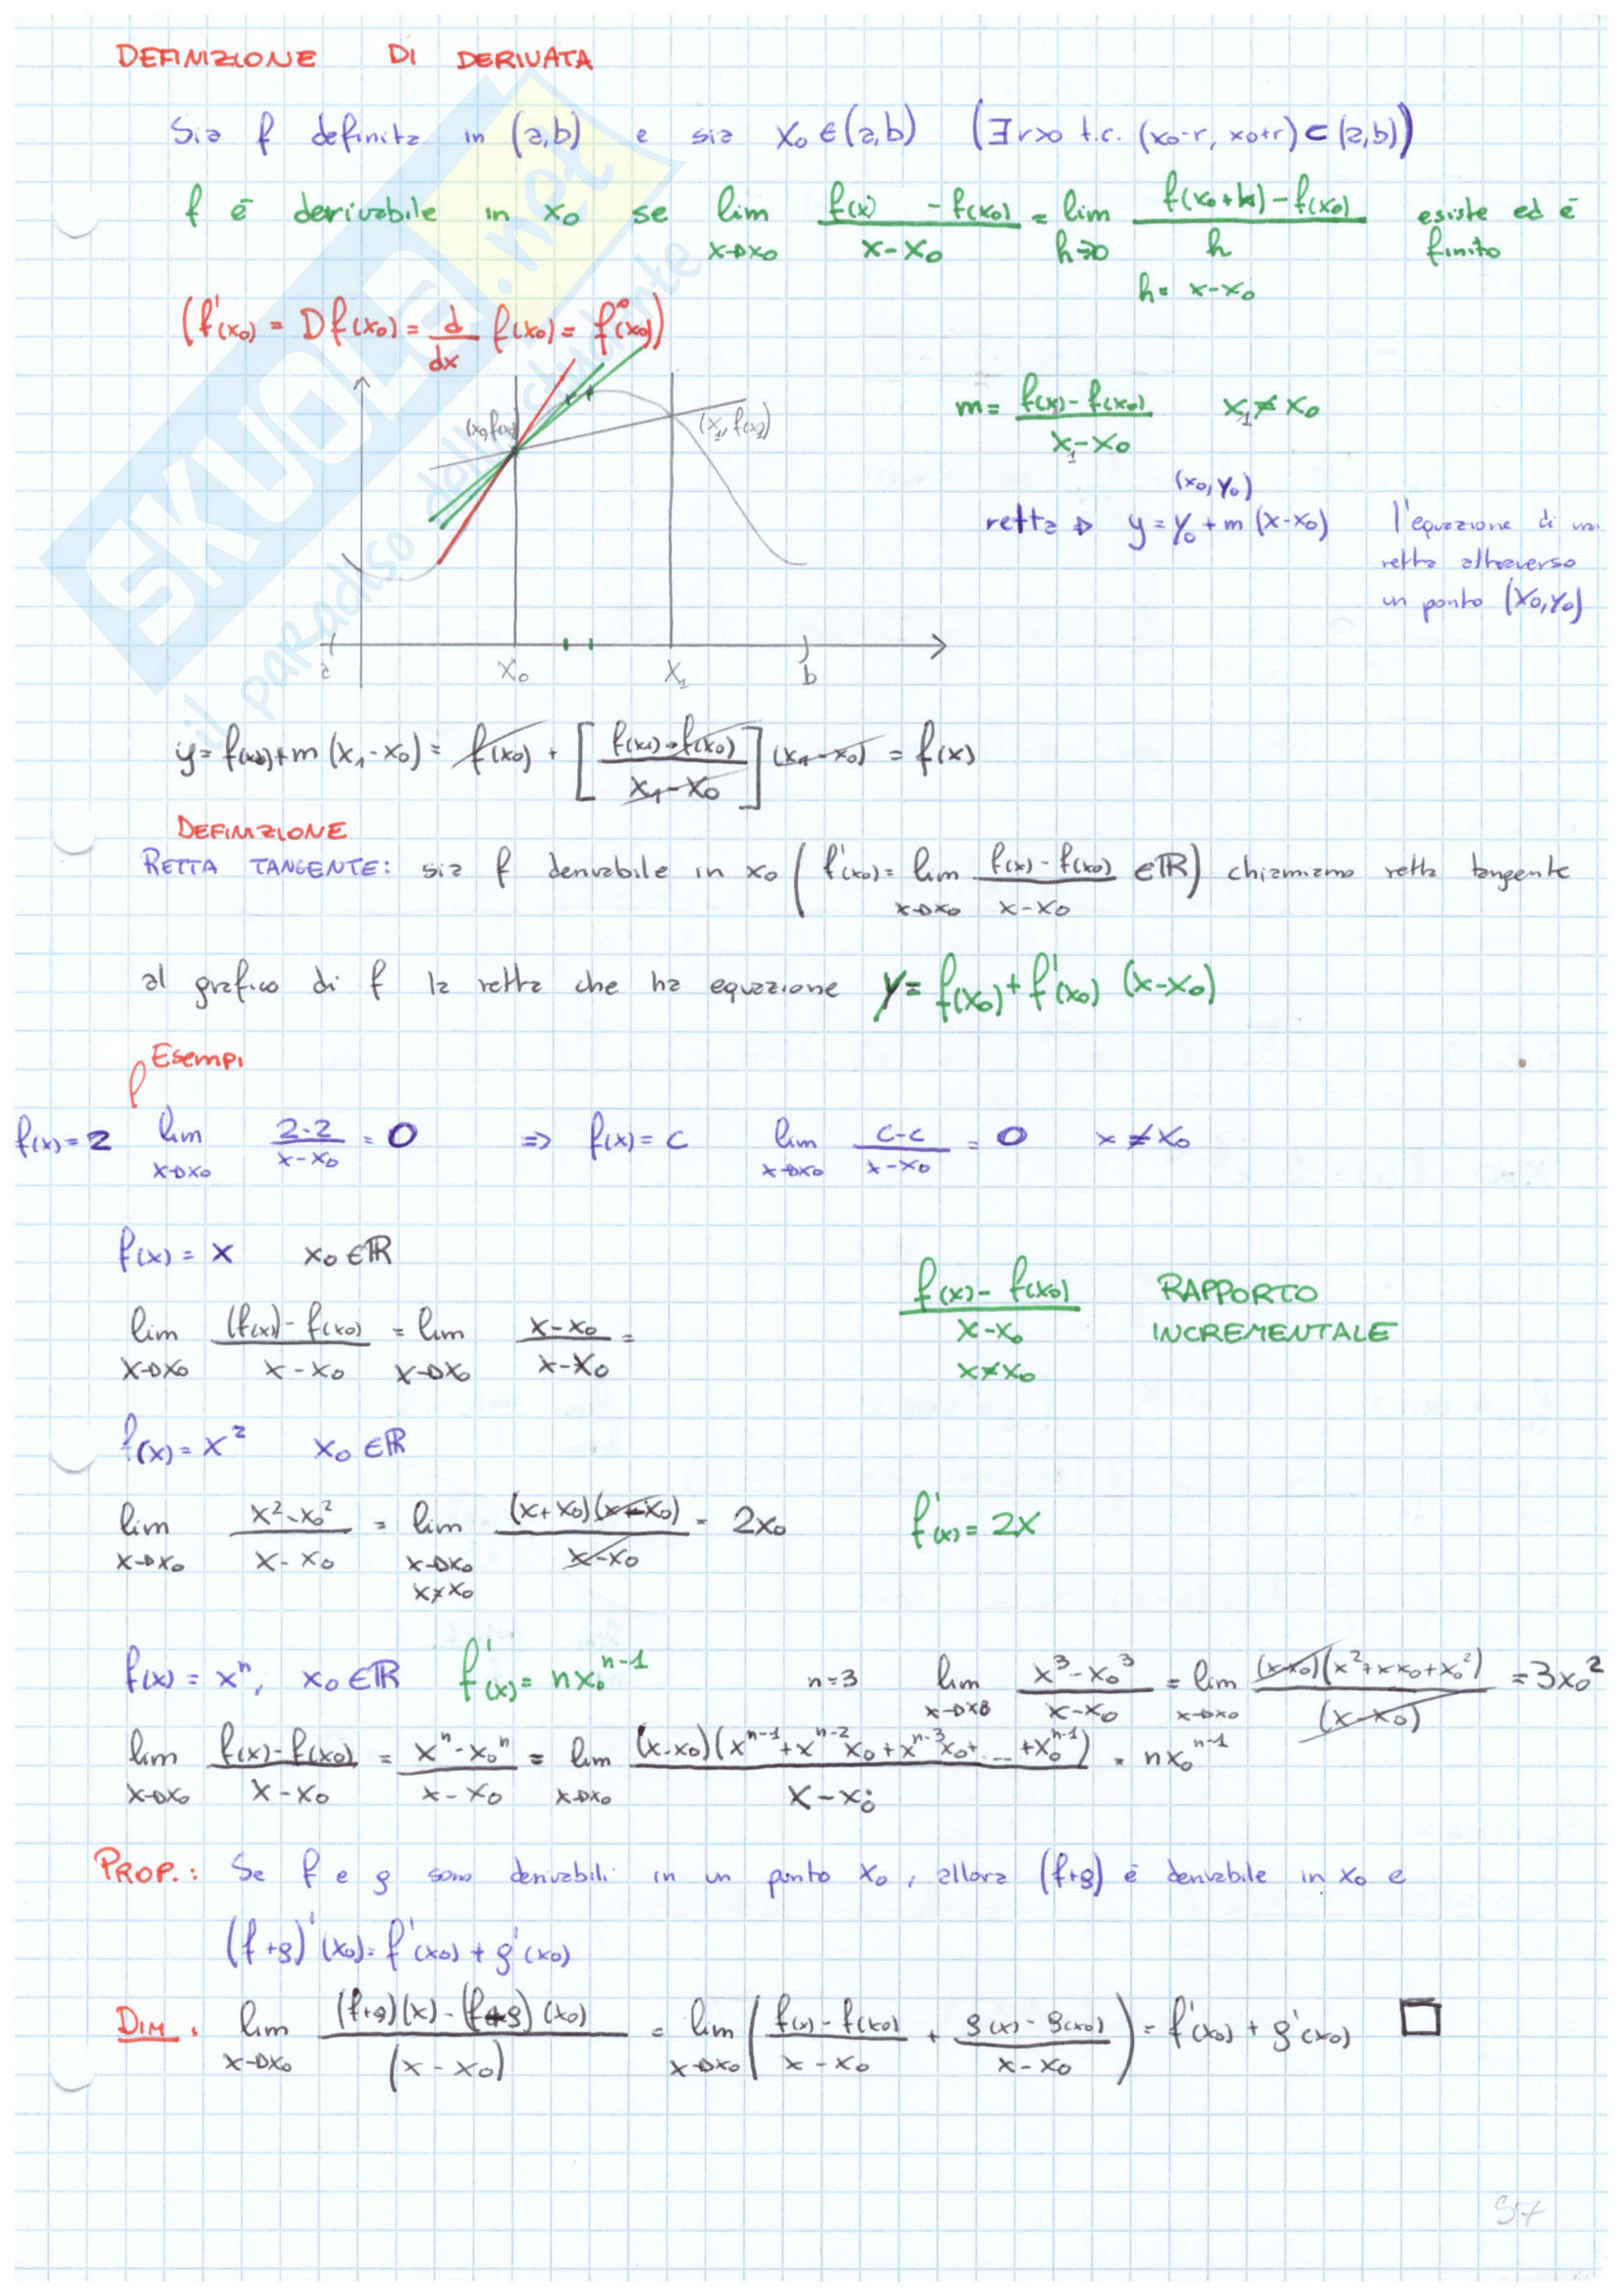 DEFINIZIONE DI DERIVATA
Sia f definita in (a,b) e sia x₀ ∈ (a,b) (∃ r>0 t.c. (x₀-r, x₀+r) ⊂ (a,b))
f é derivabile in x₀ se lim x→x₀ (f(x) - f(x₀))/(x-x₀) = lim h→0 (f(x₀+h) - f(x₀))/h esiste ed é finito
h = x-x₀
(f'(x₀) = Df(x₀) = d/dx f(x₀) = f°(x₀))
m = (f(x₁) - f(x₀))/(x₁-x₀) x₁ ≠ x₀
(x₀, f(x₀)) (x₁, f(x₁))
(x₀, y₀)
retta → y = y₀ + m (x-x₀) l'equazione di una
retta attraverso
un punto (x₀, y₀)
a x₀ x₁ b
y = f(x₀) + m (x₁-x₀) = f(x₀) + [(f(x₁) - f(x₀))/(x₁-x₀)] (x₁-x₀) = f(x)
DEFINIZIONE
RETTA TANGENTE: sia f derivabile in x₀ (f'(x₀) = lim x→x₀ (f(x) - f(x₀))/(x-x₀) ∈ ℝ) chiamiamo retta tangente
al grafico di f la retta che ha equazione y = f(x₀) + f'(x₀) (x-x₀)
Esempi
f(x) = 2 lim x→x₀ (2-2)/(x-x₀) = 0 ⇒ f(x) = c lim x→x₀ (c-c)/(x-x₀) = 0 x ≠ x₀
f(x) = x x₀ ∈ ℝ
lim x→x₀ (f(x)) - f(x₀)/(x-x₀) = lim x→x₀ (x-x₀)/(x-x₀) =
(f(x) - f(x₀))/(x-x₀) x≠x₀ RAPPORTO INCREMENTALE
f(x) = x² x₀ ∈ ℝ
lim x→x₀ (x²-x₀²)/(x-x₀) = lim x→x₀ x≠x₀ (x+x₀)(x-x₀)/(x-x₀) = 2x₀ f'(x) = 2x
f(x) = xⁿ, x₀ ∈ ℝ f'(x) = nx₀ⁿ⁻¹ n=3 lim x→x₀ (x³-x₀³)/(x-x₀) = lim x→x₀ (x-x₀)(x²+xx₀+x₀²)/(x-x₀) = 3x₀²
lim x→x₀ (f(x) - f(x₀))/(x-x₀) = (xⁿ-x₀ⁿ)/(x-x₀) = lim x→x₀ (x-x₀)(xⁿ⁻¹+xⁿ⁻²x₀+xⁿ⁻³x₀+...+x₀ⁿ⁻¹)/(x-x₀) = nx₀ⁿ⁻¹
PROP.: Se f e g sono derivabili in un punto x₀, allora (f+g) é derivabile in x₀ e
(f+g)'(x₀) = f'(x₀) + g'(x₀)
DIM. lim x→x₀ ((f+g)(x) - (f+g)(x₀))/(x-x₀) = lim x→x₀ ((f(x) - f(x₀))/(x-x₀) + (g(x) - g(x₀))/(x-x₀)) = f'(x₀) + g'(x₀) □
97
SKUOLA.net
il paradiso dello studente